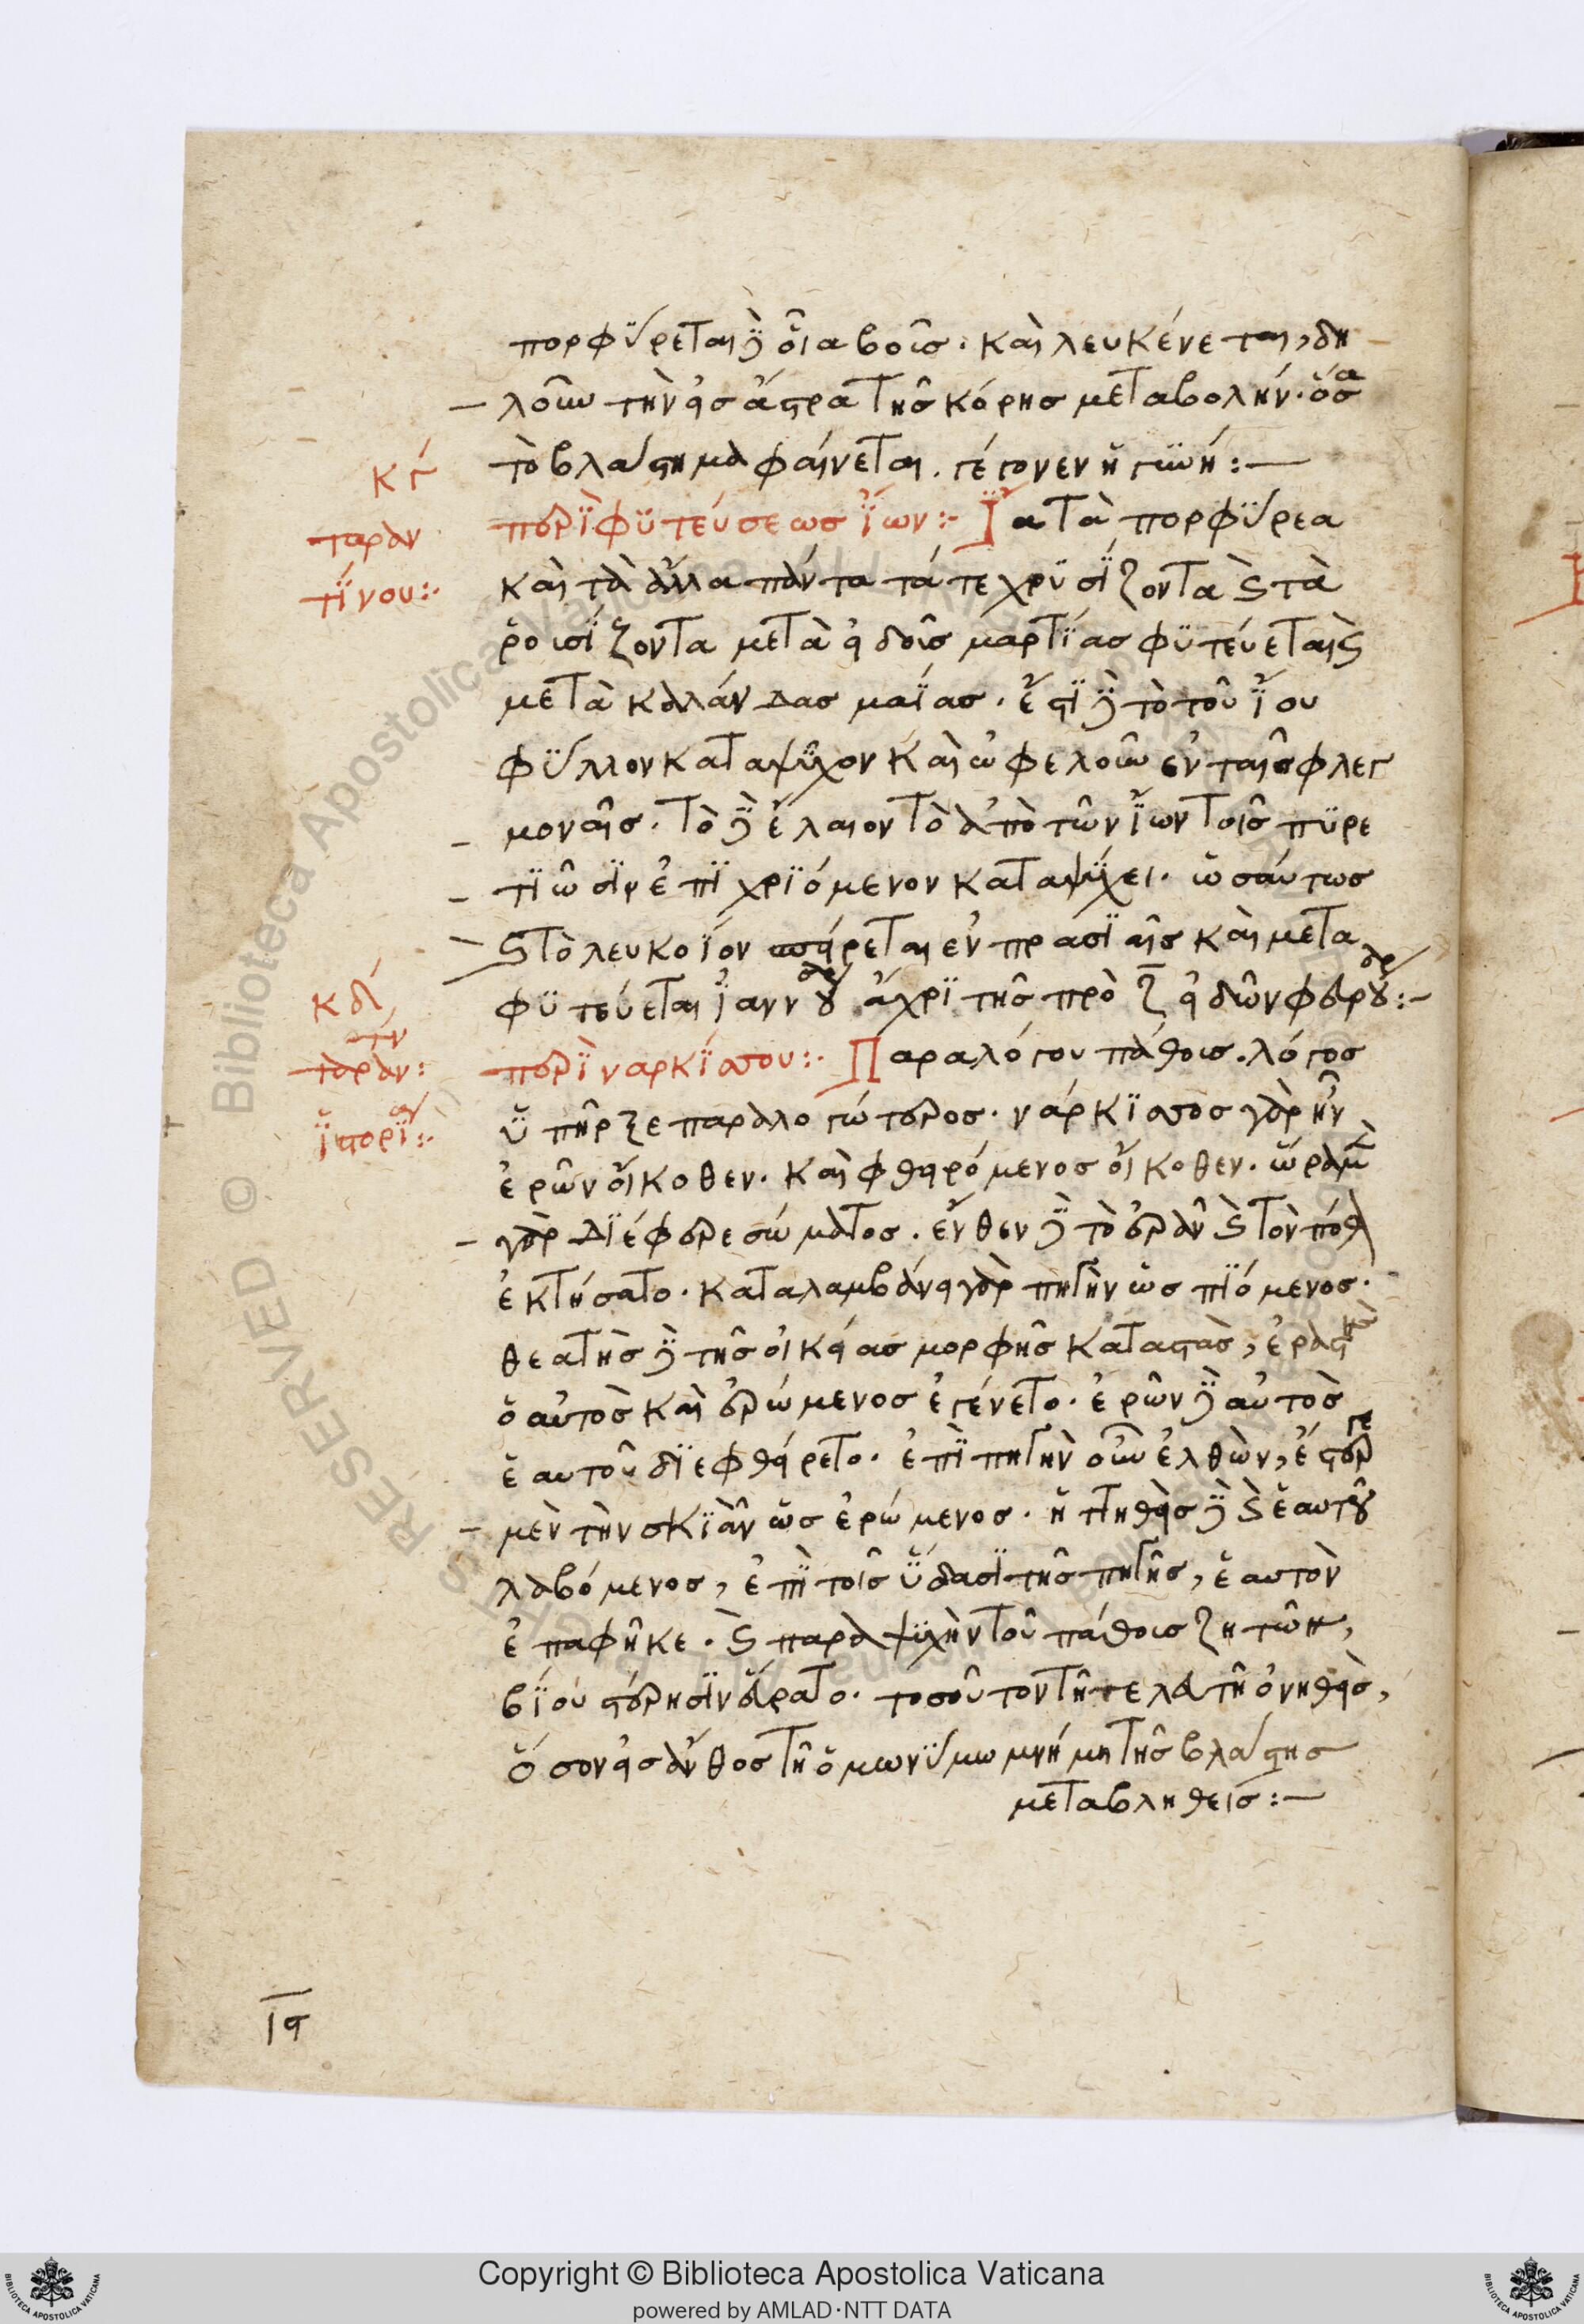 πορφύρεται δὲ οἷα βοῦς. καὶ λευκένεται, δη
λοῦν τὴν εἰς ἄστρα τῆς κόρης μεταβολήν. ὅσα
τὸ βλάστημα φαίνεται. γέγονεν ἡ γωή:—
κγ
ταραν
τίνου:·
περὶ φϋτεύσεως ἴων:· Ἴα τὰ πορφύρεα
καὶ τὰ ἄλλα πάντα τά τε χρϋσίζοντα ϛ τὰ
ῥοισίζοντα μετὰ εἰδοῖς μαρτίας φϋτεύεται ϛ
μετὰ καλάνδας μαΐας. ἔστι δὲ τὸ τοῦ ἴου
φύλλον καταψῦχον καὶ ὠφελοῦν ἐν ταῖς φλεγ
μοναῖς. τὸ δὲ ἔλαιον τὸ ἀπὸ τῶν ἴων τοῖς πϋρε
τιῶσιν ἐπιχριόμενον καταψύχει. ὡσαύτως
ϛ τὸ λευκοΐον σπείρεται ἐν πρασίαις καὶ μετα
φϋτεύεται ἰαννουαρ ἄχρι τῆς πρὸ ζ εἰδῶν φεβρουαρ:—
κδ
ταραν τίν:
ἱστορίαν:·
περὶ ναρκίσσου:· Παραλόγου πάθοις. λόγος
ὑπῆρξε παραλογώτερος. νάρκισσος γὰρ ἦν
ἐρῶν οἴκοθεν. καὶ φθειρόμενος οἴκοθεν. ὥραν μὲν
γὰρ διέφερε σώματος. ἔνθεν δὲ τὸ ἐρᾶν ϛ τὸν πόθ
ἐκτήσατο. καταλαμβάνει γὰρ πηγὴν ὡς πιόμενος.
θεατὴς δὲ τῆς οἰκείας μορφῆς καταστὰς, ἐραστὴς
ὁ αὐτὸς καὶ ἐρώμενος ἐγένετο. ἐρῶν δὲ αὐτὸς
ἑαυτοῦ διεφθείρετο. ἐπὶ πηγὴν οὖν ἐλθὼν, ἔστεργε
μὲν τὴν σκιὰν ὡς ἐρώμενος. ἡττηθεὶς δὲ ϛ ἑαυτοῦ
λαβόμενος, ἐπὶ τοῖς ὕδασι τῆς πηγῆς, ἑαυτὸν
ἐπαφῆκε. ϛ παραψυχὴν τοῦ πάθοις ζητῶν,
βίου στέρησιν εὕρατο. τοσοῦτον τῇ τελευτῇ ὀνηθεὶς,
ὅσον εἰς ἄνθος τῇ ὁμωνύμω μνήμη τῆς βλάστης
μεταβληθείς:—
ιϛ
Copyright © Biblioteca Apostolica Vaticana
powered by AMLAD·NTT DATA